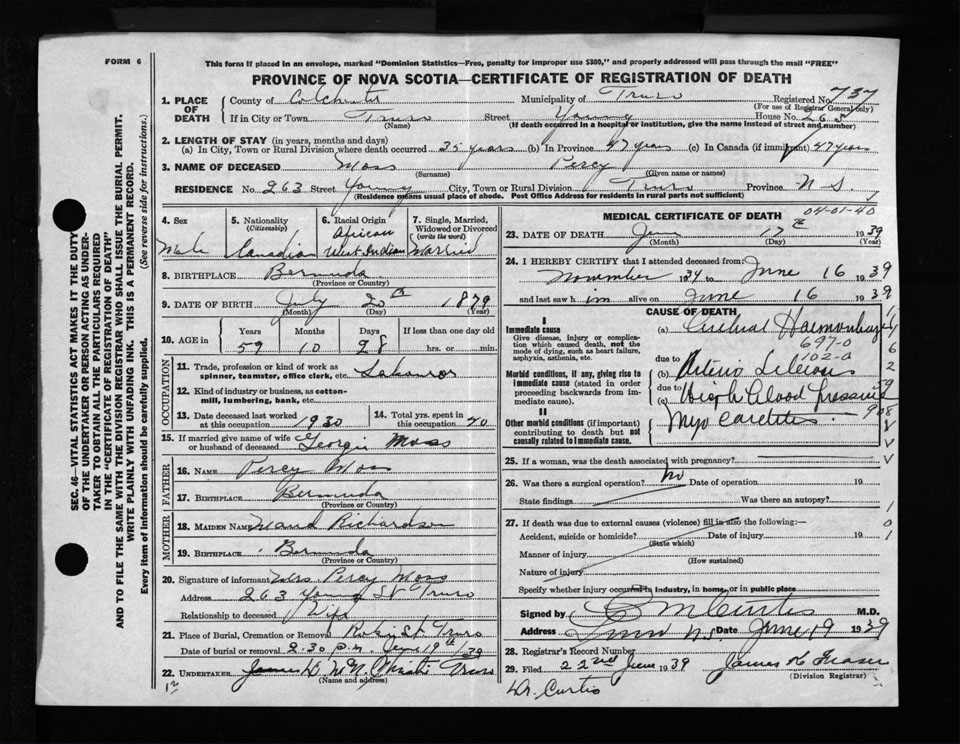 FORM 6
This form if placed in an envelope, marked "Dominion Statistics—Free, penalty for improper use $300," and properly addressed will pass through the mail "FREE"
PROVINCE OF NOVA SCOTIA—CERTIFICATE OF REGISTRATION OF DEATH
1. PLACE OF DEATH
County of Colchester Municipality of Truro Registered No. 737
(For use of Registrar General only)
If in City or Town Truro Street Young House No. 263
(Name) (If death occurred in a hospital or institution, give the name instead of street and number)
2. LENGTH OF STAY (in years, months and days)
(a) In City, Town or Rural Division where death occurred 35 years (b) In Province 47 years (c) In Canada (if immigrant) 47 years
3. NAME OF DECEASED Moss Percy
(Surname) (Given name or names)
RESIDENCE No. 263 Street Young City, Town or Rural Division Truro Province N.S.
(Residence means usual place of abode. Post Office Address for residents in rural parts not sufficient)
SEC. 46—VITAL STATISTICS ACT MAKES IT THE DUTY
OF THE UNDERTAKER OR PERSON ACTING AS UNDER-
TAKER TO OBTAIN ALL THE PARTICULARS REQUIRED
IN THE "CERTIFICATE OF REGISTRATION OF DEATH"
AND TO FILE THE SAME WITH THE DIVISION REGISTRAR WHO SHALL ISSUE THE BURIAL PERMIT.
WRITE PLAINLY WITH UNFADING INK. THIS IS A PERMANENT RECORD.
Every item of information should be carefully supplied. (See reverse side for instructions.)
4. Sex
Male
5. Nationality
(Citizenship)
Canadian
6. Racial Origin
African
West Indian
7. Single, Married, Widowed or Divorced
(write the word)
Married
8. BIRTHPLACE Bermuda
(Province or Country)
9. DATE OF BIRTH July 20th 1879
(Month) (Day) (Year)
10. AGE in
Years Months Days If less than one day old
59 10 28 hrs. or min.
OCCUPATION
11. Trade, profession or kind of work as spinner, teamster, office clerk, etc. Labourer
12. Kind of industry or business, as cotton-mill, lumbering, bank, etc.
13. Date deceased last worked at this occupation 1930
14. Total yrs. spent in this occupation 40
15. If married give name of wife or husband of deceased Georgie Moss
FATHER
16. NAME Percy Moss
17. BIRTHPLACE Bermuda
(Province or Country)
MOTHER
18. MAIDEN NAME Maud Richardson
19. BIRTHPLACE Bermuda
(Province or Country)
20. Signature of informant Mrs. Percy Moss
Address 263 Young St Truro
Relationship to deceased Wife
21. Place of Burial, Cremation or Removal Robie St. Truro
Date of burial or removal 2.30 P.M. June 19th/39
22. UNDERTAKER James D. Truro
(Name and address)
MEDICAL CERTIFICATE OF DEATH
04-01-40
23. DATE OF DEATH June 17th 1939
(Month) (Day) (Year)
24. I HEREBY CERTIFY that I attended deceased from:
November 1934 to June 16 1939
and last saw him alive on June 16 1939
CAUSE OF DEATH
I
Immediate cause
Give disease, injury or complication which caused death, not the mode of dying, such as heart failure, asphyxia, asthenia, etc.
(a) Cerebral Haemorrhage
697-0
102-0
Morbid conditions, if any, giving rise to immediate cause (stated in order proceeding backwards from immediate cause).
due to
(b) Arterio Sclerosis
due to
(c) High Blood Pressure
II
Other morbid conditions (if important) contributing to death but not causally related to immediate cause.
Myo Carditis
25. If a woman, was the death associated with pregnancy?
26. Was there a surgical operation? No Date of operation 19
State findings Was there an autopsy?
27. If death was due to external causes (violence) fill in also the following:—
Accident, suicide or homicide? Date of injury 19
(State which)
Manner of injury
(How sustained)
Nature of injury
Specify whether injury occurred in industry, in home, or in public place
Signed by C M Curtis M.D.
Address Truro N.S. Date June 19 1939
28. Registrar's Record Number
29. Filed 22nd June 1939 James K Fraser
(Division Registrar)
Dr. Curtis